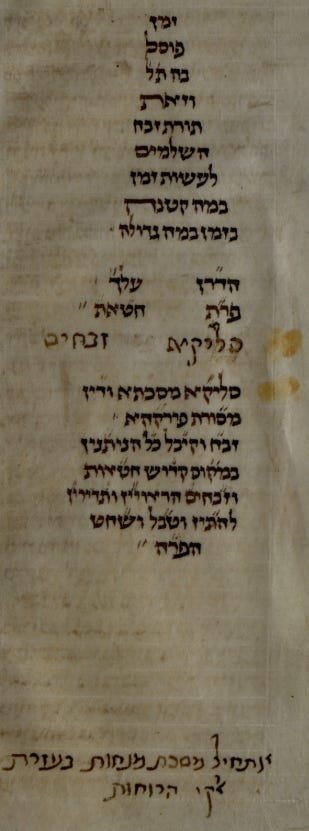 זמן
פוסל
בה תל
וזאת
תורת זבח
השלמים
לעשות זמן
במה קטנה
כזמן במה גדולה
הדרן עלך
פרת חטאת
סליקא זבחים
סליקא מסכתא ודין
מסורת פירקהא
זבח וקיבל כל הניתנין
במקום קדוש חטאות
וזבחים הראויין ותדירין
להתיז וטבל ושחט
הפרה
נתחיל מסכת מנחות בעזרת
אלקי הרוחות